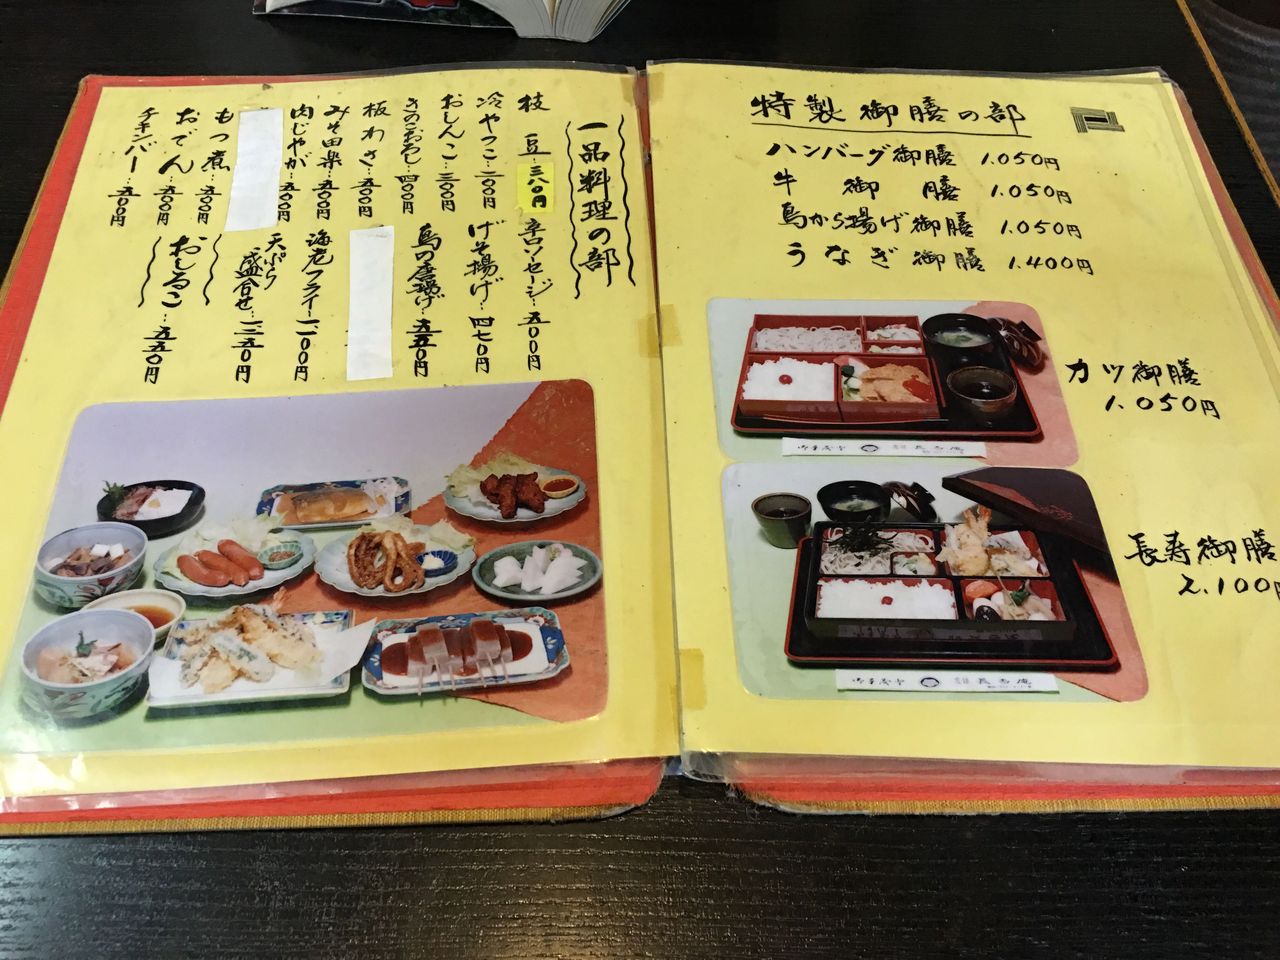 一品料理の部
枝豆…三八〇円
冷ヤっこ…三〇〇円
おしんこ…三〇〇円
きのこおろし…四〇〇円
板わさ…五〇〇円
みそ田楽…五〇〇円
肉じゃが…五〇〇円
もつ煮…五〇〇円
おでん…五〇〇円
チキンバー…五〇〇円
辛口ソーセージ…五〇〇円
げそ揚げ…四七〇円
鳥の唐揚げ…五五〇円
海老フライ…一一〇〇円
天ぷら盛合せ…一三五〇円
おしるこ…五五〇円
特製御膳の部
ハンバーグ御膳 1.050円
牛御膳 1.050円
鳥から揚げ御膳 1.050円
うなぎ御膳 1.400円
カツ御膳
1.050円
長寿御膳
2.100円